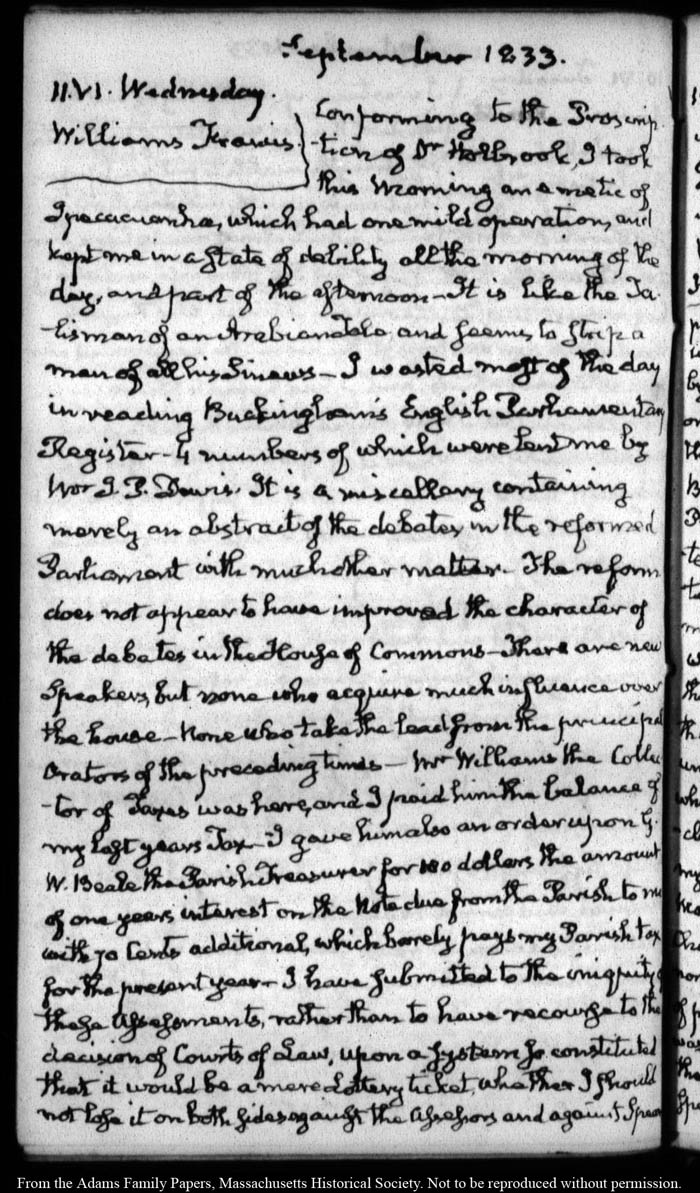 September 1833.
11. VI. Wednesday.
Williams Francis.
Conforming to the Prescrip-
-tion of Dr Holbrook, I took
this morning an emetic of
Ipecacuanha, which had one mild operation, and
kept me in a state of debility all the morning of the
day, and part of the afternoon — It is like the Ta-
-lisman of an Arabian Tale, and seems to strip a
man of all his Sinews — I wasted most of the day
in reading Buckingham's English Parliamentary
Register — 4 numbers of which were lent me by
Mr J. P. Davis. It is a miscellany containing
merely an abstract of the debates in the reformed
Parliament with much other matter. The reform
does not appear to have improved the character of
the debates in the House of Commons — There are new
Speakers, but none who acquire much influence over
the house — None who take the lead from the principal
Orators of the preceding times — Mr Williams the Collec-
-tor of Taxes was here, and I paid him the balance of
my last years Tax — I gave him also an order upon G.
W. Beale the Parish Treasurer for 100 dollars the amount
of one years interest on the Note due from the Parish to me
with 70 Cents additional, which barely pays my Parish tax
for the present year — I have submitted to the iniquity of
these Assessments, rather than to have recourse to the
decision of Courts of Law, upon a system so constituted
that it would be a mere Lottery ticket, whether I should
not lose it on both sides against the Assessors and against
From the Adams Family Papers, Massachusetts Historical Society. Not to be reproduced without permission.